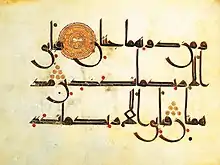 ومن دونهما جنتان فبأي
آلاء ربكما تكذبان مد
هامتان فبأي آلاء ربكما تكذ